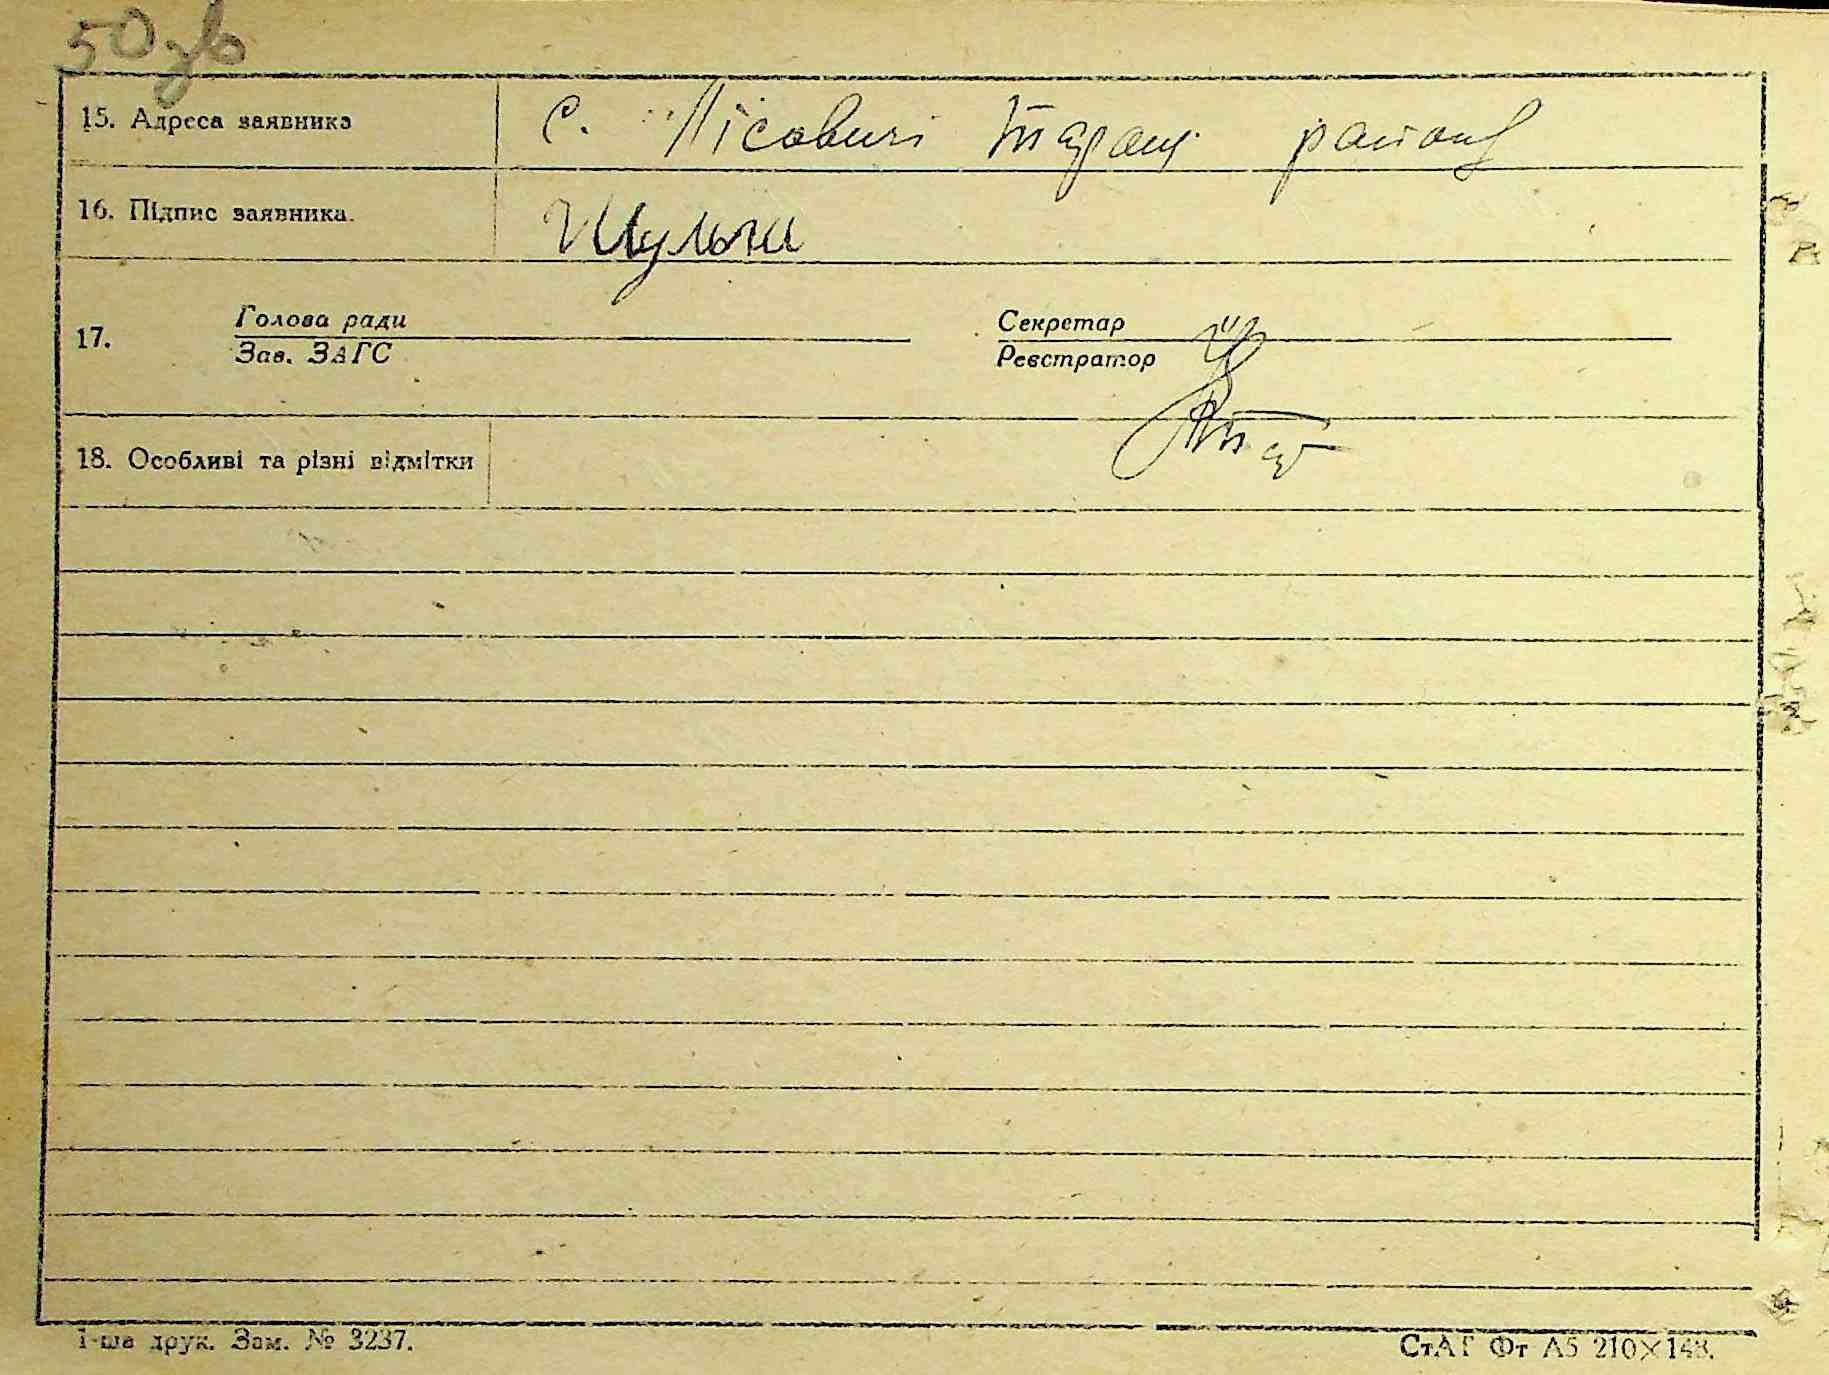 50 зв
15. Адреса заявника с. Лісовичі Таращ району
16. Підпис заявника.
17. Голова ради Секретар
Зав. ЗАГС Реєстратор
18. Особливі та різні відмітки
1-ша друк. Зам. № 3237. СтАТ Фт А5 210×148.